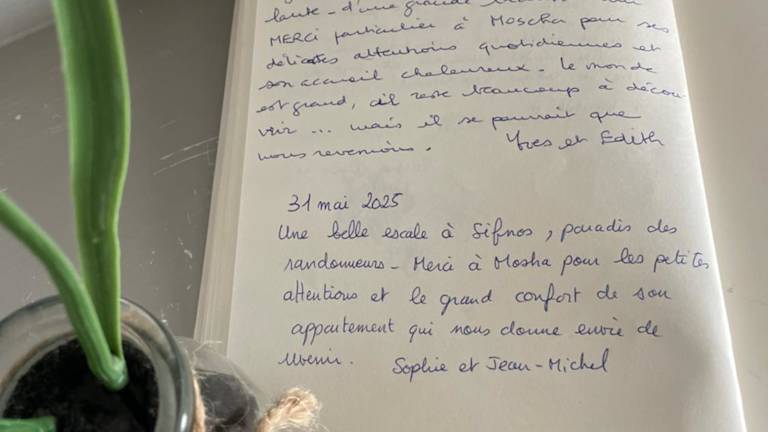 haute - d'une grande
MERCi particulier à Moscha pour ses
délicates attentions quotidiennes et
son accueil chaleureux - le monde
est grand, il reste beaucoup à décou
vrir ... mais il se pourrait que
nous revenions. Yves et Edith
31 mai 2025
Une belle escale à Sifnos, paradis des
randonneurs - Merci à Mosha pour les petites
attentions et le grand confort de son
appartement qui nous donne envie de
revenir. Sophie et Jean-Michel